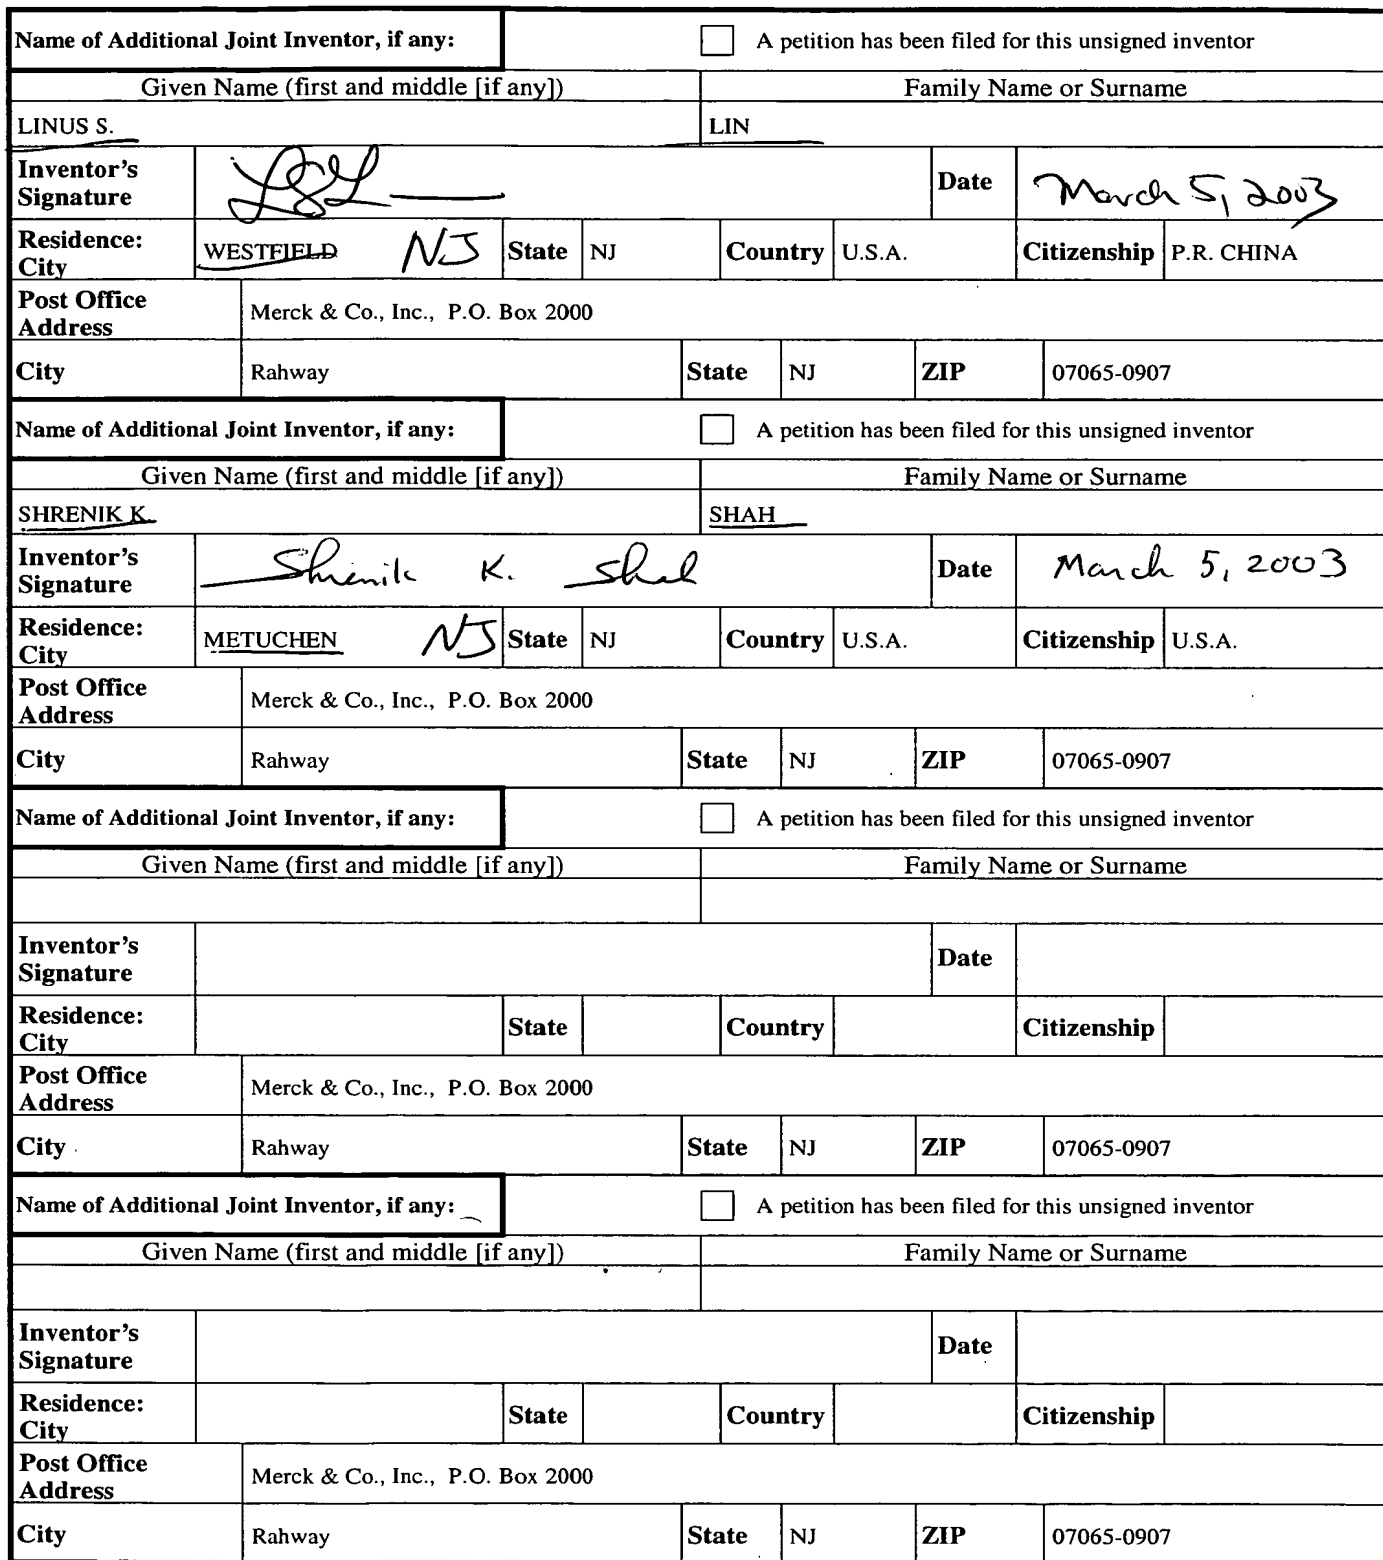 Name of Additional Joint Inventor, if any: ☐ A petition has been filed for this unsigned inventor
Given Name (first and middle [if any]) Family Name or Surname
LINUS S. LIN
Inventor's Signature Date March 5, 2003
Residence: City WESTFIELD NJ State NJ Country U.S.A. Citizenship P.R. CHINA
Post Office Address Merck & Co., Inc., P.O. Box 2000
City Rahway State NJ ZIP 07065-0907
Name of Additional Joint Inventor, if any: ☐ A petition has been filed for this unsigned inventor
Given Name (first and middle [if any]) Family Name or Surname
SHRENIK K. SHAH
Inventor's Signature Shrenik K. Shah Date March 5, 2003
Residence: City METUCHEN NJ State NJ Country U.S.A. Citizenship U.S.A.
Post Office Address Merck & Co., Inc., P.O. Box 2000
City Rahway State NJ ZIP 07065-0907
Name of Additional Joint Inventor, if any: ☐ A petition has been filed for this unsigned inventor
Given Name (first and middle [if any]) Family Name or Surname
Inventor's Signature Date
Residence: City State Country Citizenship
Post Office Address Merck & Co., Inc., P.O. Box 2000
City Rahway State NJ ZIP 07065-0907
Name of Additional Joint Inventor, if any: ☐ A petition has been filed for this unsigned inventor
Given Name (first and middle [if any]) Family Name or Surname
Inventor's Signature Date
Residence: City State Country Citizenship
Post Office Address Merck & Co., Inc., P.O. Box 2000
City Rahway State NJ ZIP 07065-0907